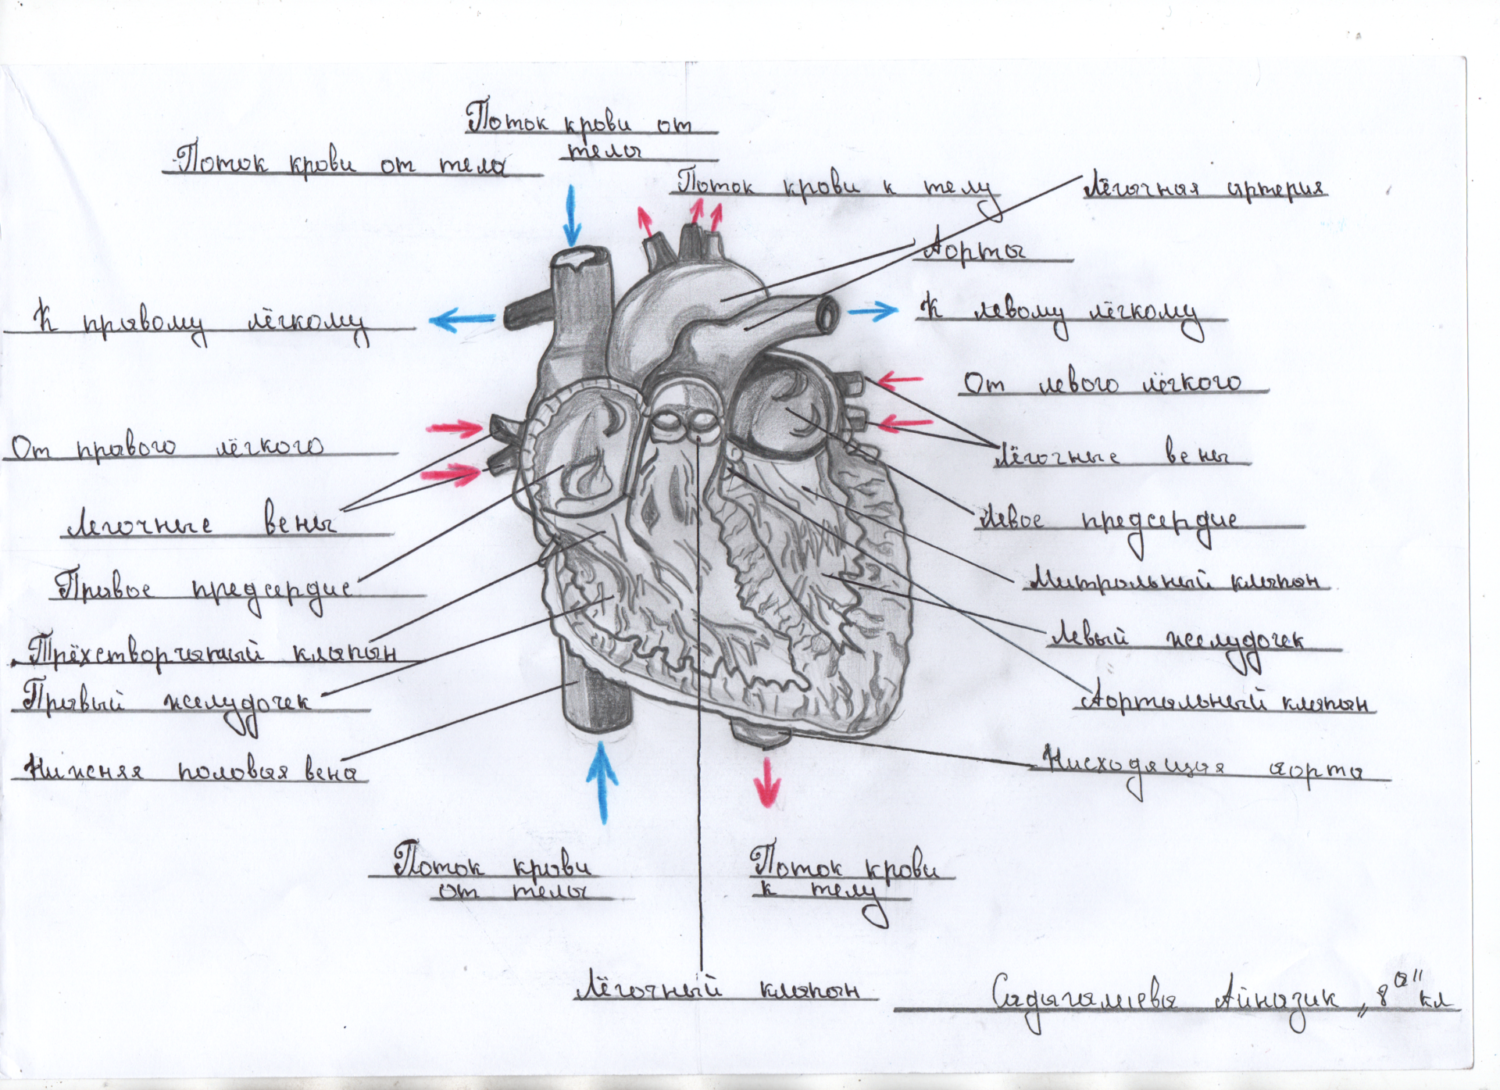 Поток крови от
тела
Поток крови от тела
Поток крови к телу
Лёгочная артерия
Аорта
К правому лёгкому
К левому лёгкому
От левого лёгкого
От правого лёгкого
Лёгочные вены
Легочные вены
Левое предсердие
Правое предсердие
Митральный клапан
Трёхстворчатый клапан
Левый желудочек
Правый желудочек
Аортальный клапан
Нижняя половая вена
Нисходящая аорта
Поток крови
от тела
Поток крови
к телу
Лёгочный клапан
Айназик „8"а" кл